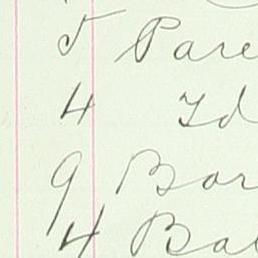 5 Pare
4 Id
9 Bor
4 Bal